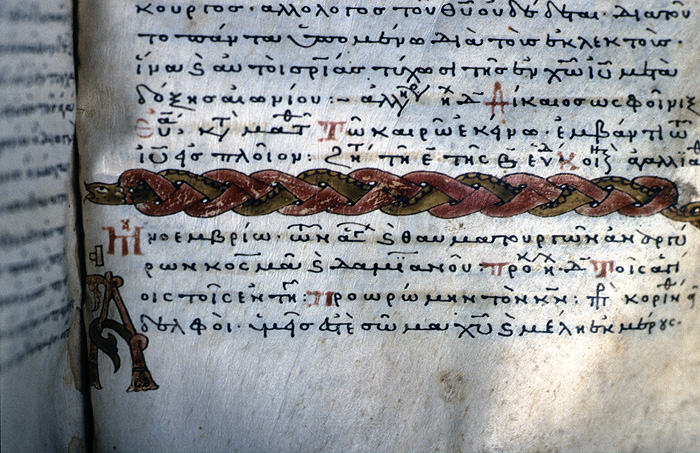 κουργος· αλλ ο λογος του θυ ου δεδεται· δια του
το παντα υπομενω δια τους εκλεκτους·
ινα ϗ αυτοι σριας τυχωσι της εν χω ιυ μετα
δοξης αιωνιου:– αλλη Δικαιος ως φοινιξ
Τω καιρω εκεινω· εμβαντι τω
ιυ εις πλοιον: ζη τη ε της β εβδ κοι αλλια
Μη νοεμβριω· των αγ ϗ θαυματουργων αναργυ
ρων κοσμα ϗ δαμιανου: προκ· Τοις αγι
οις τοις εν τη: Προωρωμην τον κν: πρ κορινθ
Αδελφοι· υμεις εστε σωμα χυ ϗ μελη εκ μερους·